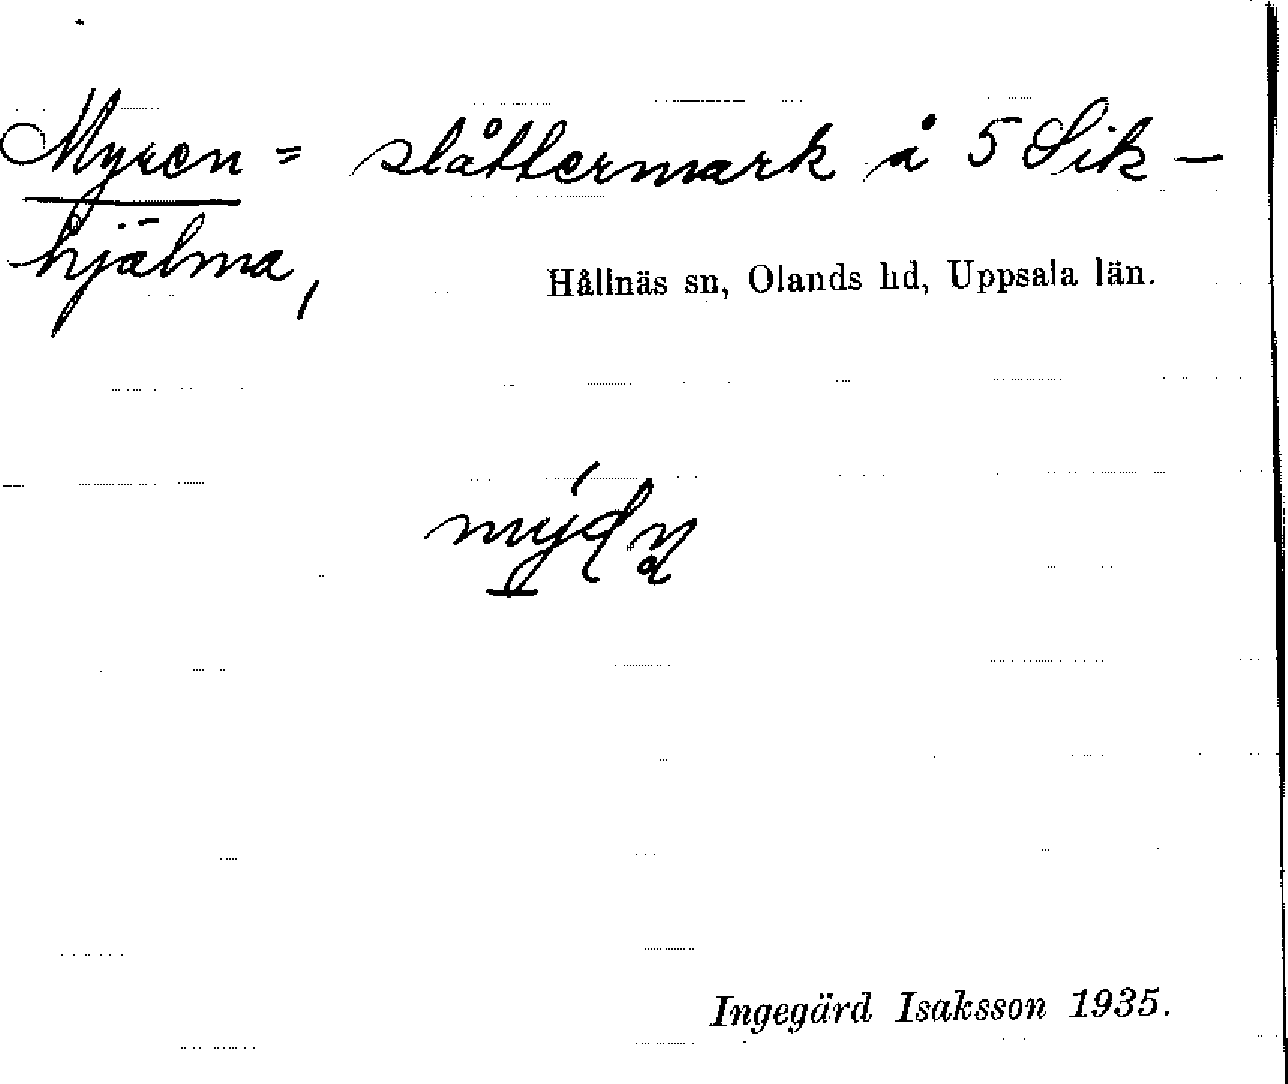 Myren = slåttermark å 5 Sik-
hjälma,
Hållnäs sn, Olands hd, Uppsala län.
Ingegärd Isaksson 1935.